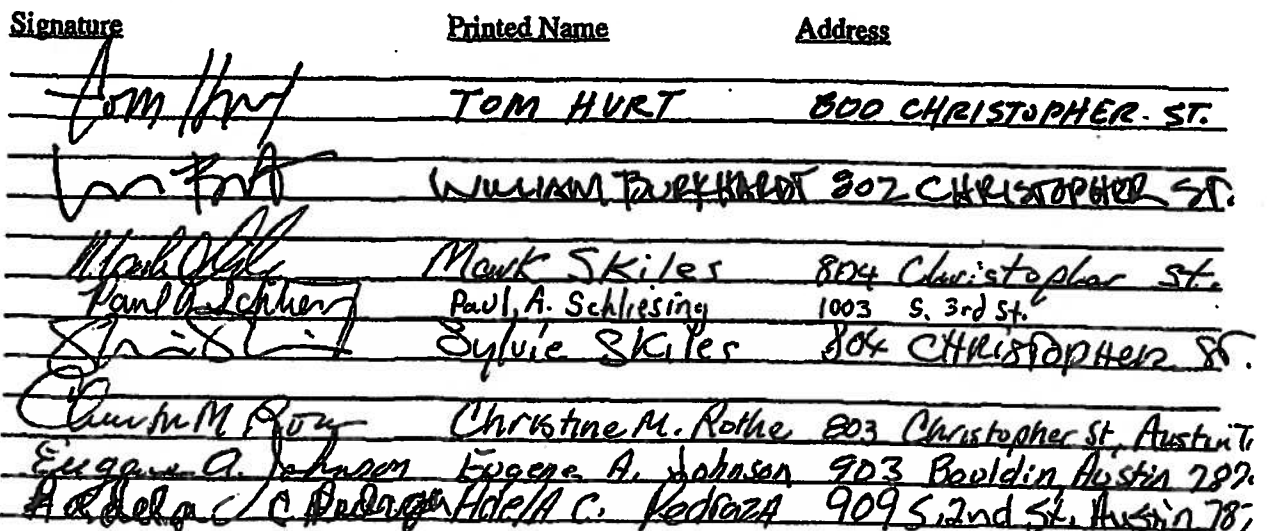 Signature Printed Name Address
Tom Hurt TOM HURT 800 CHRISTOPHER ST.
WILLIAM BURKHARDT 802 CHRISTOPHER ST.
Mark Skiles 804 Christopher St.
Paul A. Schliesing 1003 S. 3rd St.
Sylvie Skiles 804 CHRISTOPHER ST.
Christine M. Rothe 803 Christopher St, Austin T
Eugene A. Johnson Eugene A. Johnson 903 Bouldin, Austin 787
Adela C. Pedraza AdelA C. PedrazA 909 S. 2nd St. Austin 787